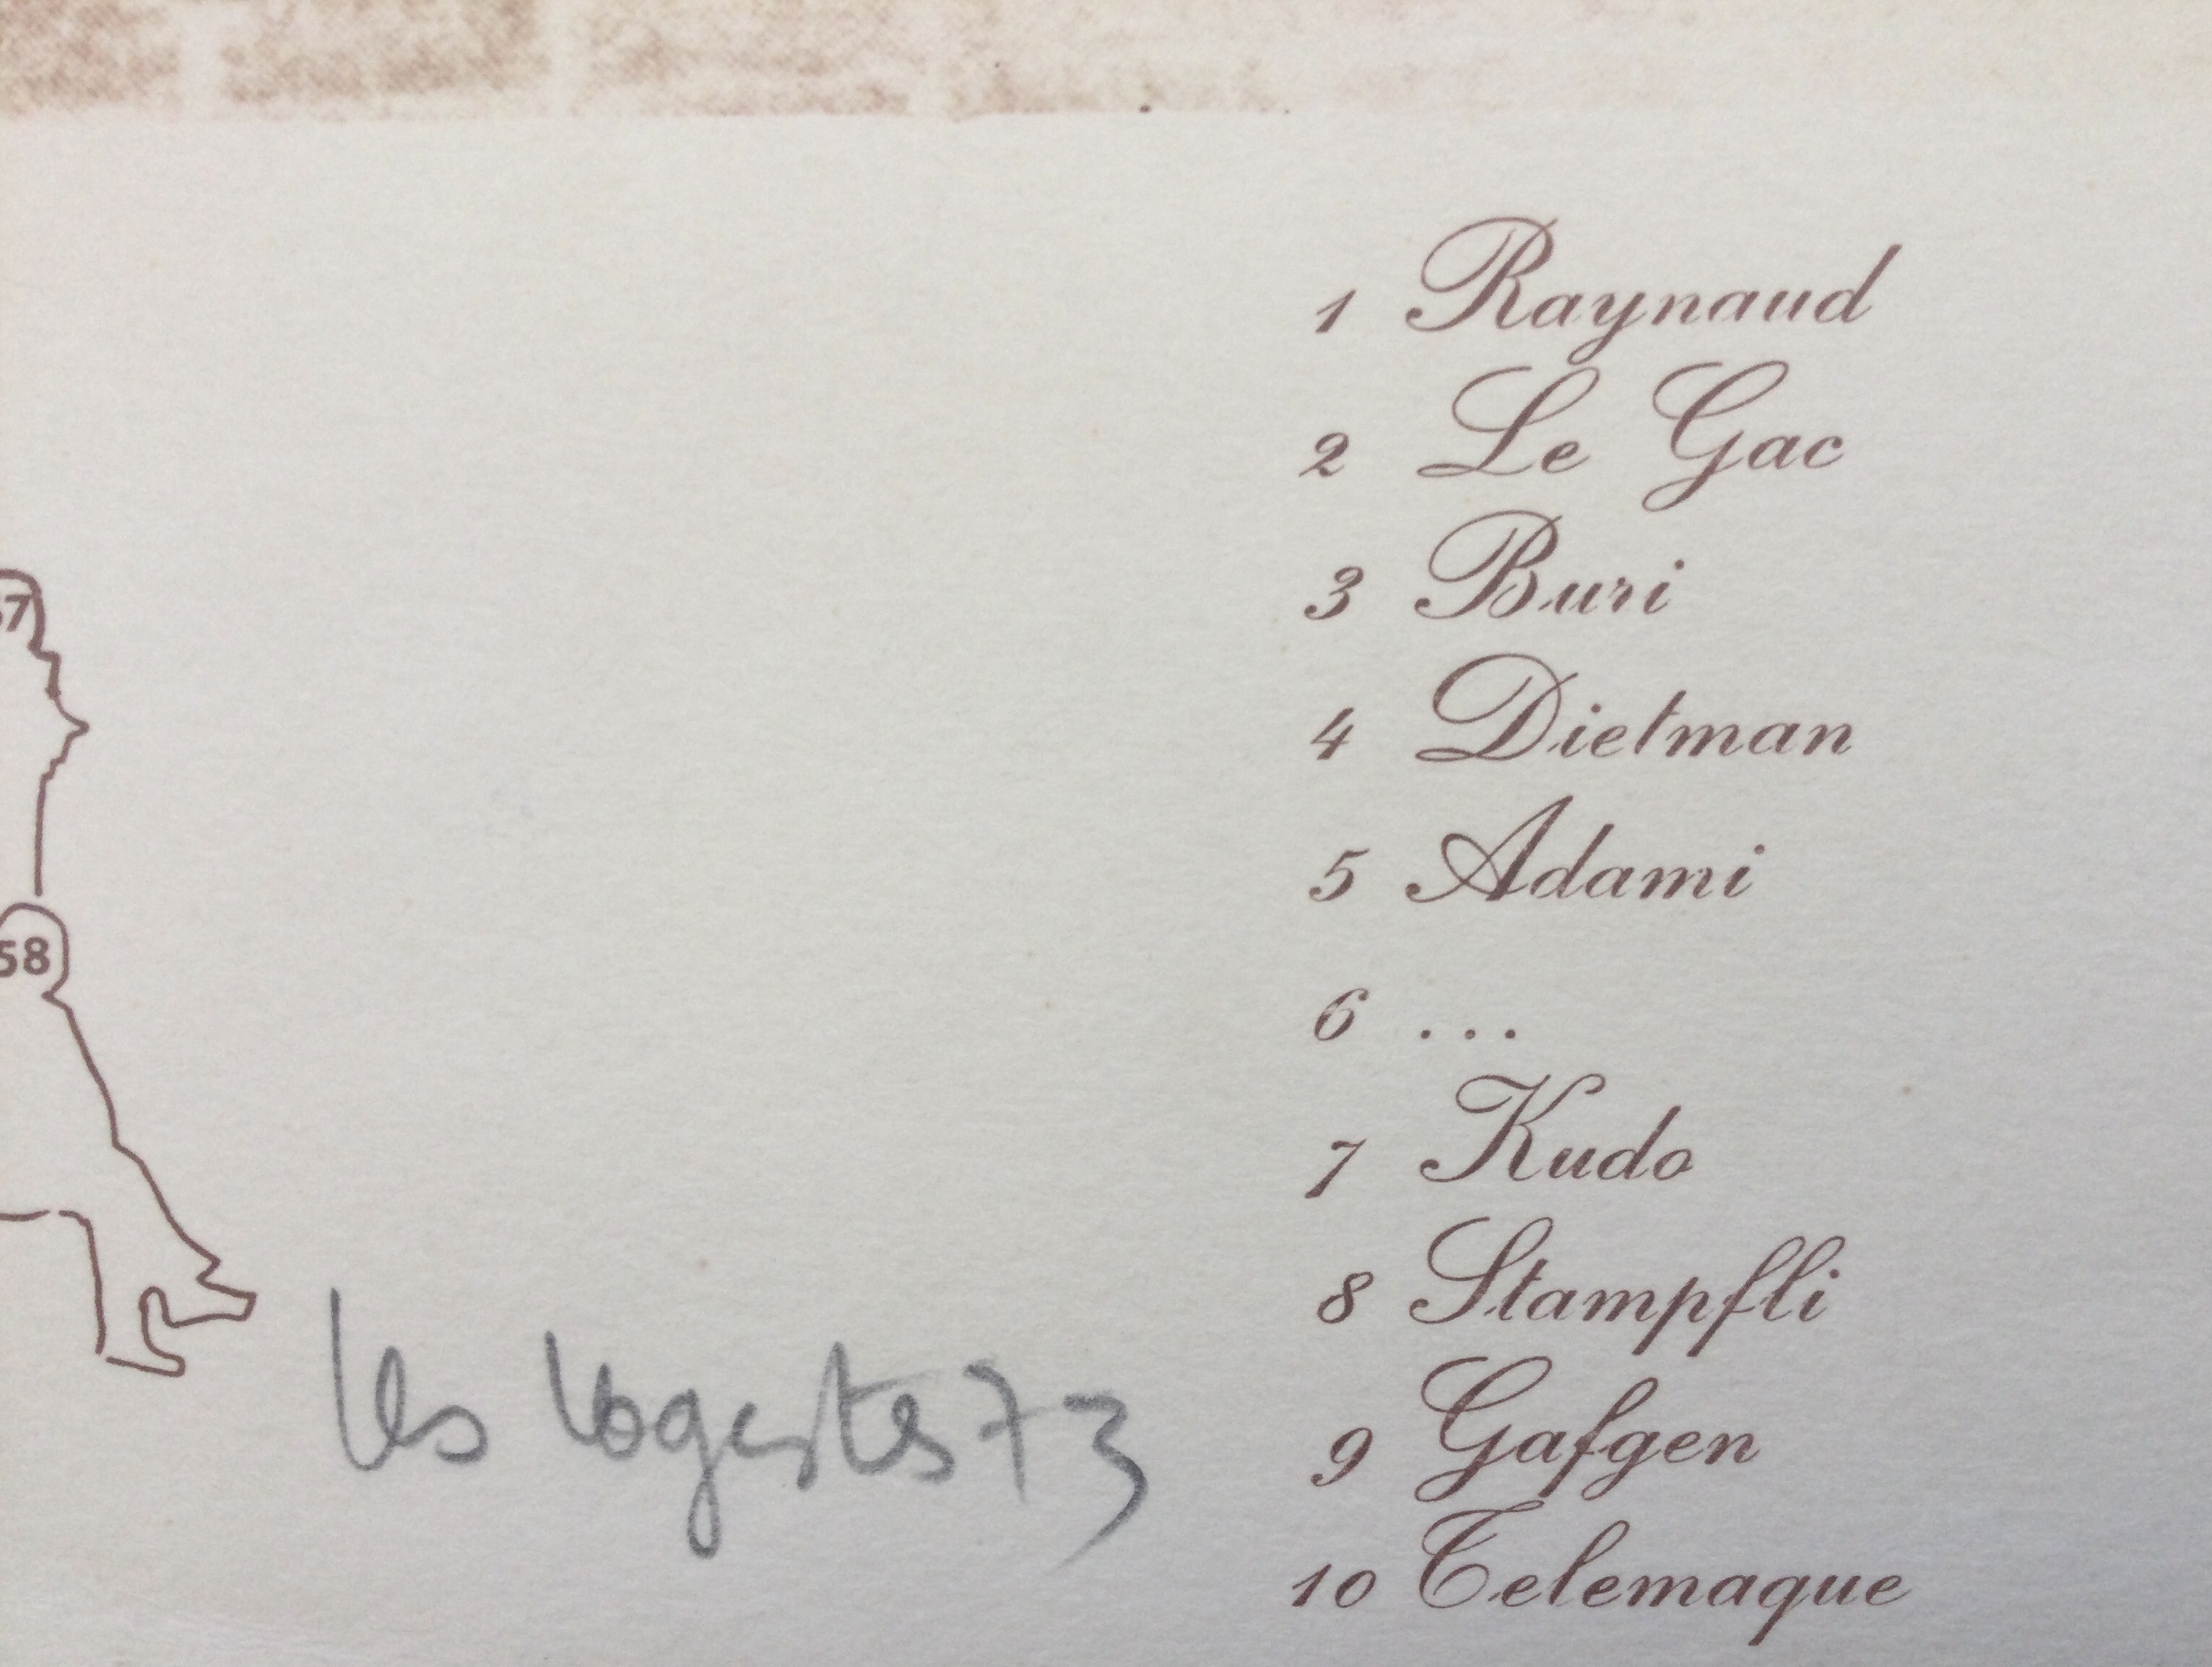 1 Raynaud
2 Le Gac
3 Buri
4 Dietman
5 Adami
6 ...
7 Kudo
8 Stampfli
9 Gafgen
10 Telemaque
58
les 73